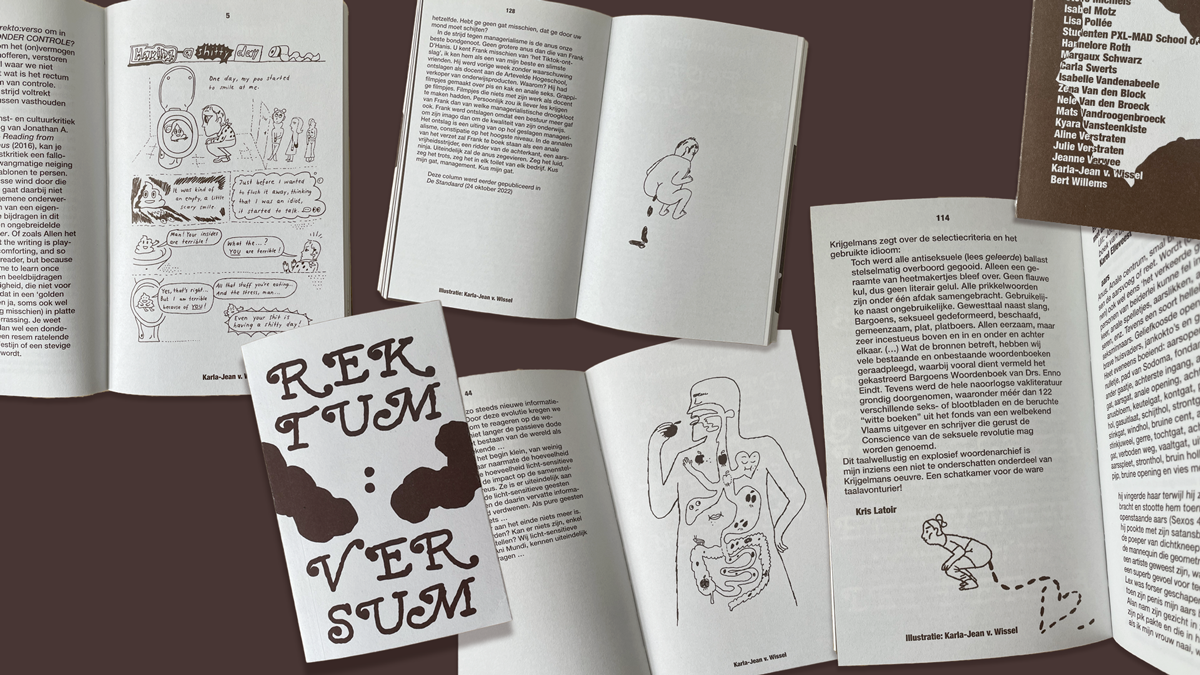 rekto:verso om in
ONDER CONTROLE?
om het (on)vermogen
hofferen, verstoren
l waar we niet
wat is het rectum
n van controle.
strijd voltrekt
ussen vasthouden
nst- en cultuurkritiek
g van Jonathan A.
Reading from
us (2016), kan je
stkritiek een fallo-
wangmatige neiging
ablonen te persen.
esse wind door die
gaat daarbij niet
gemene onderwer-
n van een eigen-
e bijdragen in dit
en ongebreidelde
Of zoals Allen het
t the writing is play-
comforting, and so
reader, but because
me to learn once
en beeldbijdragen
igheid, die niet voor
dat in een 'golden
n ja, soms ook wel
g misschien) in platte
errassing. Je weet
dan wel een donde-
een resem ratelende
estijn of een stevige
wordt.
5
Having a shitty day
One day, my poo started
to smile at me.
It was kind of
an empty, a little
scary smile.
Just before I wanted
to flush it away, thinking
that I was an idiot,
it started to talk.
Man! Your insides
are terrible!
What the...?
YOU are terrible!
Yes, that's right...
But I am terrible
because of YOU!
All that stuff you're eating...
And the stress, man...
Even your shit is
having a shitty day!
Karla-Jean v. W
128
hetzelfde. Hebt ge geen gat misschien, dat ge door uw
mond moet schijten?
In de strijd tegen managerialisme is de anus onze
beste bondgenoot. Geen grotere anus dan die van Frank
D'Hanis. U kent Frank misschien van 'het Tiktok-ont-
slag', ik ken hem als een van mijn beste en slimste
vrienden. Hij werd vorige week zonder waarschuwing
ontslagen als docent aan de Artevelde Hogeschool,
verkoper van onderwijsproducten. Waarom? Hij had
filmpjes gemaakt over pis en kak en anale seks. Grappi-
ge filmpjes. Filmpjes die niets met zijn werk als docent
te maken hadden. Persoonlijk zou ik liever les krijgen
van Frank dan van welke managerialistische droogkloot
ook. Frank werd ontslagen omdat een bestuur meer gaf
om zijn imago dan om de kwaliteit van zijn onderwijs.
Het ontslag is een uiting van op hol geslagen manageri-
alisme, constipatie op het hoogste niveau. In de annalen
van het verzet zal Frank te boek staan als een anale
vrijheidsstrijder, een ridder van de achterkant, een aars-
ninja. Uiteindelijk zal de anus zegevieren. Zeg het luid,
zeg het trots, zeg het in elk toilet van elk bedrijf. Kus
mijn gat, management. Kus mijn gat.
Deze column werd eerder gepubliceerd in
De Standaard (24 oktober 2022)
Illustratie: Karla-Jean v. Wissel
Isabel Motz
Lisa Pollée
Studenten PXL-MAD School o
Hannelore Roth
Margaux Schwarz
Carla Swerts
Isabelle Vandenabeele
Zena Van den Block
Nele Van den Broeck
Mats Vandroogenbroeck
Kyara Vansteenkiste
Aline Verstraten
Julie Verstraten
Jeanne Verwee
Karla-Jean v. Wissel
Bert Willems
REK
TUM
:
VER
SUM
44
zo steeds nieuwe informatie-
Door deze evolutie kregen we
m te reageren op de we-
niet langer de passieve dode
t bestaan van de wereld als
kende ...
het begin klein, van weinig
ar naarmate de hoeveelheid
e hoeveelheid licht-sensitieve
de impact op de samenstel-
eus. Ze is er uiteindelijk aan
de licht-sensitieve geesten
en de daarin vervatte informa-
d verdwenen. Als pure geesten
ts ...
aan het einde niets meer is.
den? Kan er niets zijn, enkel
tellen? Wij licht-sensitieve
Ani Mundi, kennen uiteindelijk
ragen ...
Karla-Jean v. Wissel
114
Krijgelmans zegt over de selectiecriteria en het
gebruikte idioom:
Toch werd alle antiseksuele (lees geleerde) ballast
stelselmatig overboord gegooid. Alleen een ge-
raamte van heetmakertjes bleef over. Geen flauwe
kul, dus geen literair gelul. Alle prikkelwoorden
zijn onder één afdak samengebracht. Gebruikelij-
ke naast ongebruikelijke. Gewesttaal naast slang,
Bargoens, seksueel gedeformeerd, beschaafd,
gemeenzaam, plat, platboers. Allen eerzaam, maar
zeer incestueus boven en in en onder en achter
elkaar. (...) Wat de bronnen betreft, hebben wij
vele bestaande en onbestaande woordenboeken
geraadpleegd, waarbij vooral dient vermeld het
gekastreerd Bargoens Woordenboek van Drs. Enno
Eindt. Tevens werd de hele naoorlogse vakliteratuur
grondig doorgenomen, waaronder méér dan 122
verschillende seks- of blootbladen en de beruchte
"witte boeken" uit het fonds van een welbekend
Vlaams uitgever en schrijver die gerust de
Conscience van de seksuele revolutie mag
worden genoemd.
Dit taalwellustig en explosief woordenarchief is
mijn inziens een niet te onderschatten onderdeel van
Krijgelmans oeuvre. Een schatkamer voor de ware
taalavonturier!
Kris Latoir
Illustratie: Karla-Jean v. Wissel